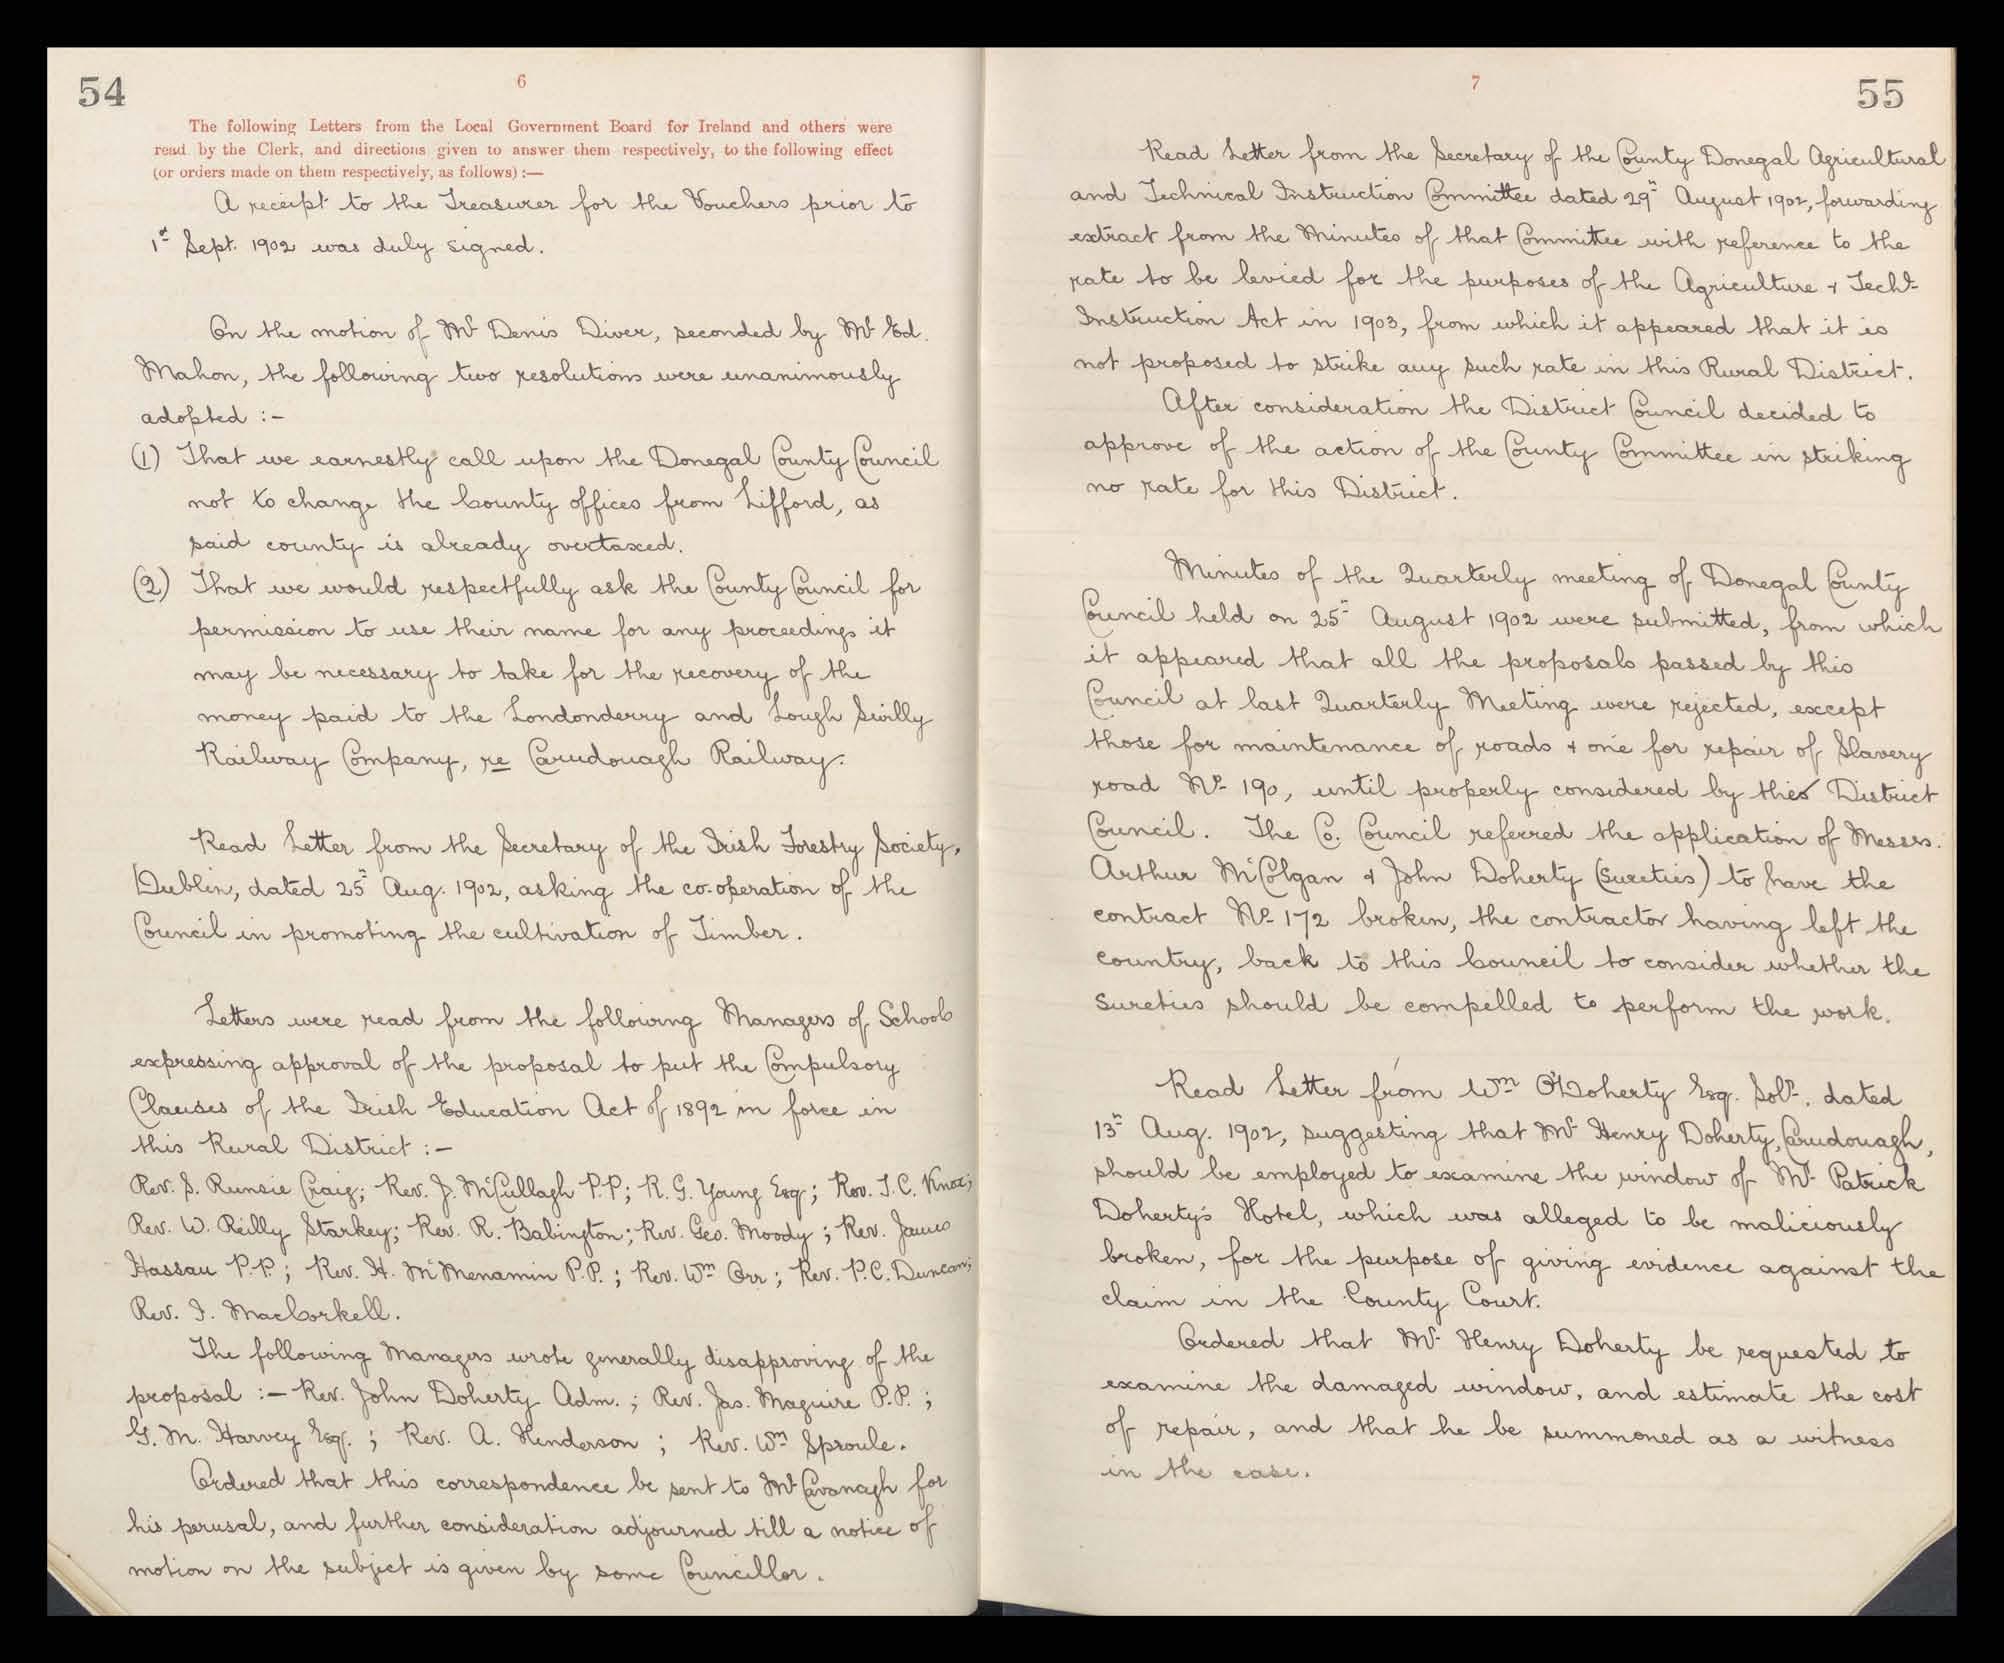 54
6
The following Letters from the Local Government Board for Ireland and others were
read by the Clerk, and directions given to answer them respectively, to the following effect
(or orders made on them respectively, as follows) :—
A receipt to the Treasurer for the Vouchers prior to
1st Sept. 1902 was duly signed.
On the motion of Mr Denis Diver, seconded by Mr Ed.
Mahon, the following two resolutions were unanimously
adopted :-
(1) That we earnestly call upon the Donegal County Council
not to change the County offices from Lifford, as
said county is already overtaxed.
(2) That we would respectfully ask the County Council for
permission to use their name for any proceedings it
may be necessary to take for the recovery of the
money paid to the Londonderry and Lough Swilly
Railway Company, re Carndonagh Railway.
Read Letter from the Secretary of the Irish Forestry Society,
Dublin, dated 25th Aug. 1902, asking the co-operation of the
Council in promoting the cultivation of Timber.
Letters were read from the following Managers of Schools
expressing approval of the proposal to put the Compulsory
Clauses of the Irish Education Act of 1892 in force in
this Rural District :-
Rev. S. Runsie Craig; Rev. J. McCullagh P.P.; R. G. Young Esq; Rev. T. C. Knox;
Rev. W. Reilly Starkey; Rev. R. Babington; Rev. Geo. Moody; Rev. James
Hassan P.P.; Rev. H. McMenamin P.P.; Rev. Wm Orr; Rev. P. C. Duncan;
Rev. F. MacCorkell.
The following Managers wrote generally disapproving of the
proposal :- Rev. John Doherty Adm.; Rev. Jas. Maguire P.P.;
G. M. Harvey Esq.; Rev. A. Henderson; Rev. Wm Sproule.
Ordered that this correspondence be sent to Mr Cavanagh for
his perusal, and further consideration adjourned till a notice of
motion on the subject is given by some Councillor.
7
55
Read Letter from the Secretary of the County Donegal Agricultural
and Technical Instruction Committee dated 29th August 1902, forwarding
extract from the Minutes of that Committee with reference to the
rate to be levied for the purposes of the Agriculture & Techl
Instruction Act in 1903, from which it appeared that it is
not proposed to strike any such rate in this Rural District.
After consideration the District Council decided to
approve of the action of the County Committee in striking
no rate for this District.
Minutes of the Quarterly meeting of Donegal County
Council held on 25th August 1902 were submitted, from which
it appeared that all the proposals passed by this
Council at last Quarterly Meeting were rejected, except
those for maintenance of roads & one for repair of Slavery
road No 190, until properly considered by this District
Council. The Co. Council referred the application of Messrs.
Arthur McColgan & John Doherty (Sureties) to have the
contract No 172 broken, the contractor having left the
country, back to this Council to consider whether the
Sureties should be compelled to perform the work.
Read Letter from Wm O'Doherty Esq. Solr. dated
13th Aug. 1902, suggesting that Mr Henry Doherty, Carndonagh,
should be employed to examine the window of Mr Patrick
Doherty's Hotel, which was alleged to be maliciously
broken, for the purpose of giving evidence against the
claim in the County Court.
Ordered that Mr Henry Doherty be requested to
examine the damaged window, and estimate the cost
of repair, and that he be summoned as a witness
in the case.